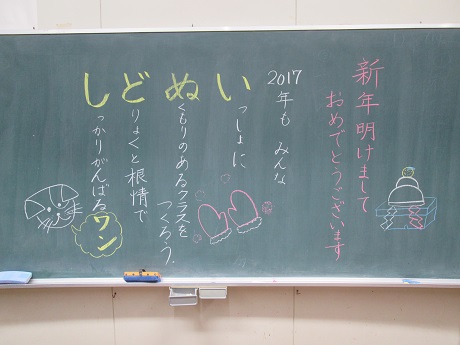 新年明けまして
おめでとうございます
2017
年も みんな
いっしょに
ぬくもりのあるクラスを
つくろう.
どりょくと根情で
しっかりがんばるワン